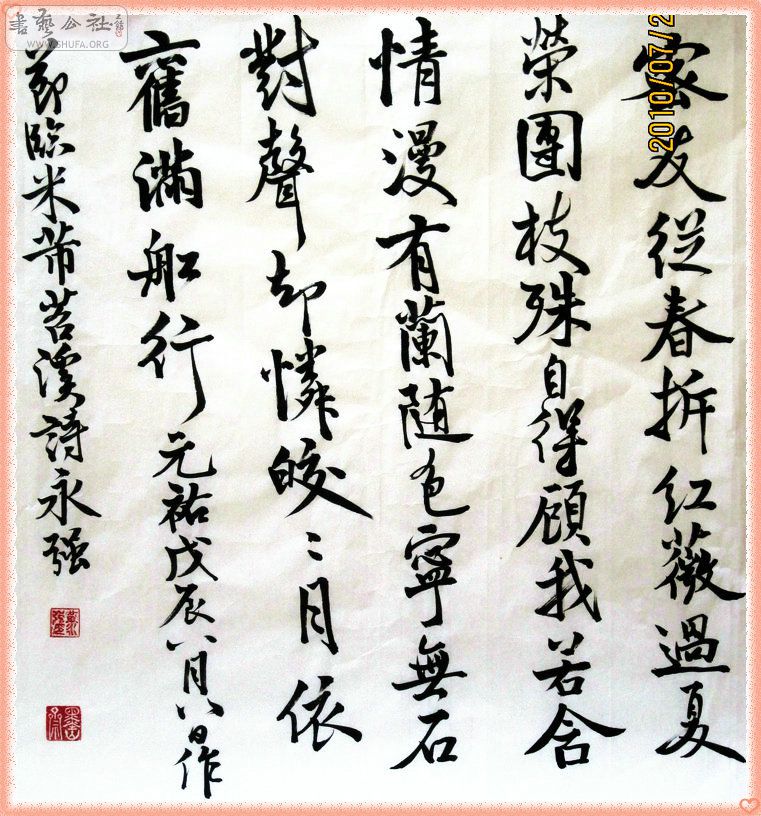 書藝公社
WWW.SHUFA.ORG
2010/07/2
密友從春拆紅薇過夏
榮團枝殊自得顧我若含
情漫有蘭随色寧無石
對聲却憐皎〻月依
舊滿船行元祐戊辰八月八日作
節臨米芾苕溪詩永强